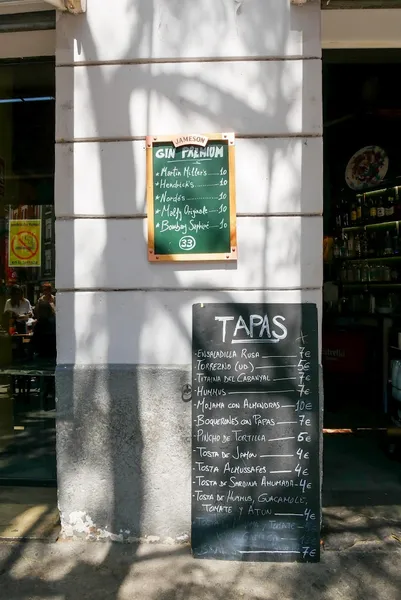 JAMESON
GIN PREMIUM
* Martin Miller's 10
* Hendrick's 10
* Nordés 10
* Malfy Originale 10
* Bombay Saphire 10
33
TAPAS
- ENSALADILLA RUSA 7€
- TORREZNO (UD) 5€
- TITAINA DEL CABANYAL 7€
- HUMMUS 7€
- MOJAMA CON ALMENDRAS 10€
- BOQUERONES CON PAPAS 7€
- PINCHO DE TORTILLA 6€
- TOSTA DE JAMÓN 4€
- TOSTA ALMUSSAFES 4€
- TOSTA DE SARDINA AHUMADA 4€
- TOSTA DE HUMUS, GUACAMOLE,
TOMATE Y ATÚN 4€
7€